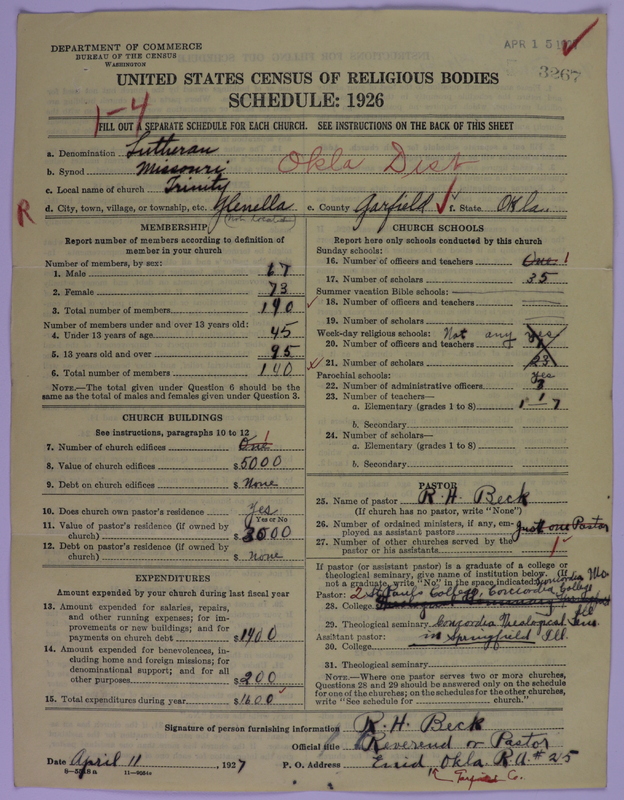 DEPARTMENT OF COMMERCE
BUREAU OF THE CENSUS
WASHINGTON
APR 15 1927
3267
UNITED STATES CENSUS OF RELIGIOUS BODIES
SCHEDULE: 1926
1-4
FILL OUT A SEPARATE SCHEDULE FOR EACH CHURCH. SEE INSTRUCTIONS ON THE BACK OF THIS SHEET
a. Denomination Lutheran
b. Synod Missouri Okla Dist
c. Local name of church Trinity
R d. City, town, village, or township, etc. Glenella e. County Garfield f. State Okla.
MEMBERSHIP
Report number of members according to definition of
member in your church
Number of members, by sex:
1. Male 67
2. Female 73
3. Total number of members 140
Number of members under and over 13 years old:
4. Under 13 years of age 45
5. 13 years old and over 95
6. Total number of members 140
NOTE.—The total given under Question 6 should be the
same as the total of males and females given under Question 3.
CHURCH BUILDINGS
See instructions, paragraphs 10 to 12
7. Number of church edifices One 1
8. Value of church edifices $5000
9. Debt on church edifices $ None
10. Does church own pastor's residence Yes
Yes or No
11. Value of pastor's residence (if owned by
church) $3500
12. Debt on pastor's residence (if owned by
church) $ none
EXPENDITURES
Amount expended by church during last fiscal year
13. Amount expended for salaries, repairs,
and other running expenses; for im-
provements or new buildings; and for
payments on church debt $1400
14. Amount expended for benevolences, in-
cluding home and foreign missions; for
denominational support; and for all
other purposes $200
15. Total expenditures during year $1600
CHURCH SCHOOLS
Report here only schools conducted by this church
Sunday schools:
16. Number of officers and teachers One 1
17. Number of scholars 35
Summer vacation Bible schools:
18. Number of officers and teachers
19. Number of scholars
Week-day religious schools: Not any yes
20. Number of officers and teachers
21. Number of scholars 23
Parochial schools: yes
22. Number of administrative officers
23. Number of teachers—
a. Elementary (grades 1 to 8) 1 1 7
b. Secondary
24. Number of scholars—
a. Elementary (grades 1 to 8)
b. Secondary
PASTOR
25. Name of pastor R. H. Beck
(If church has no pastor, write "None")
26. Number of ordained ministers, if any, em-
ployed as assistant pastors Just one Pastor
27. Number of other churches served by the
pastor or his assistants 1
If pastor (or assistant pastor) is a graduate of a college or
theological seminary, give name of institution below. (If
not a graduate, write "No" in the space indicated) Concordia Mo.
Pastor: 2 St Pauls College, Concordia College
28. College
29. Theological seminary Concordia Theological Sem.
Ill
Assistant pastor: in Springfield Ill.
30. College
31. Theological seminary
NOTE.—Where one pastor serves two or more churches,
Questions 28 and 29 should be answered only on the schedule
for one of the churches; on the schedules for the other churches,
write "See schedule for ________ church."
Signature of person furnishing information R. H. Beck
Official title Reverend or Pastor
Date April 11, 1927 P. O. Address Enid Okla. R.R. # 2 5
Garfield Co.